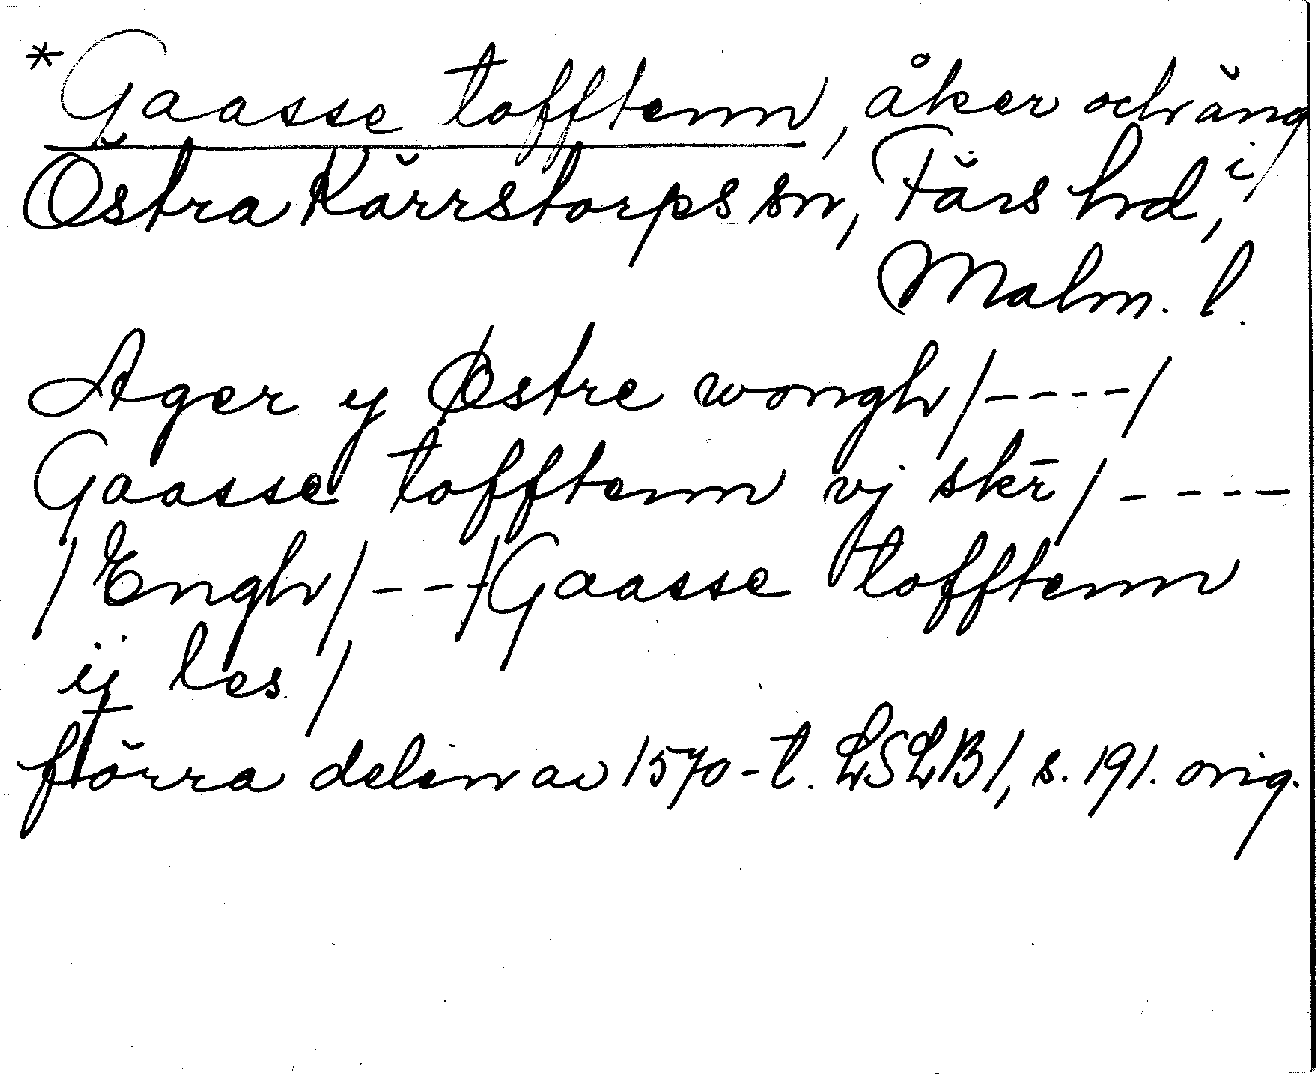 *Gaasse tofftenn, åker och äng i
Östra Kärrstorps sn, Färs hrd,
Malm. l.
Ager y Østre wongh/----/
Gaasse tofftenn vj skr̄/----
/Engh/---/Gaasse tofftenn
ij les/
förra delen av 1570-t. LSLB1, s. 191. orig.